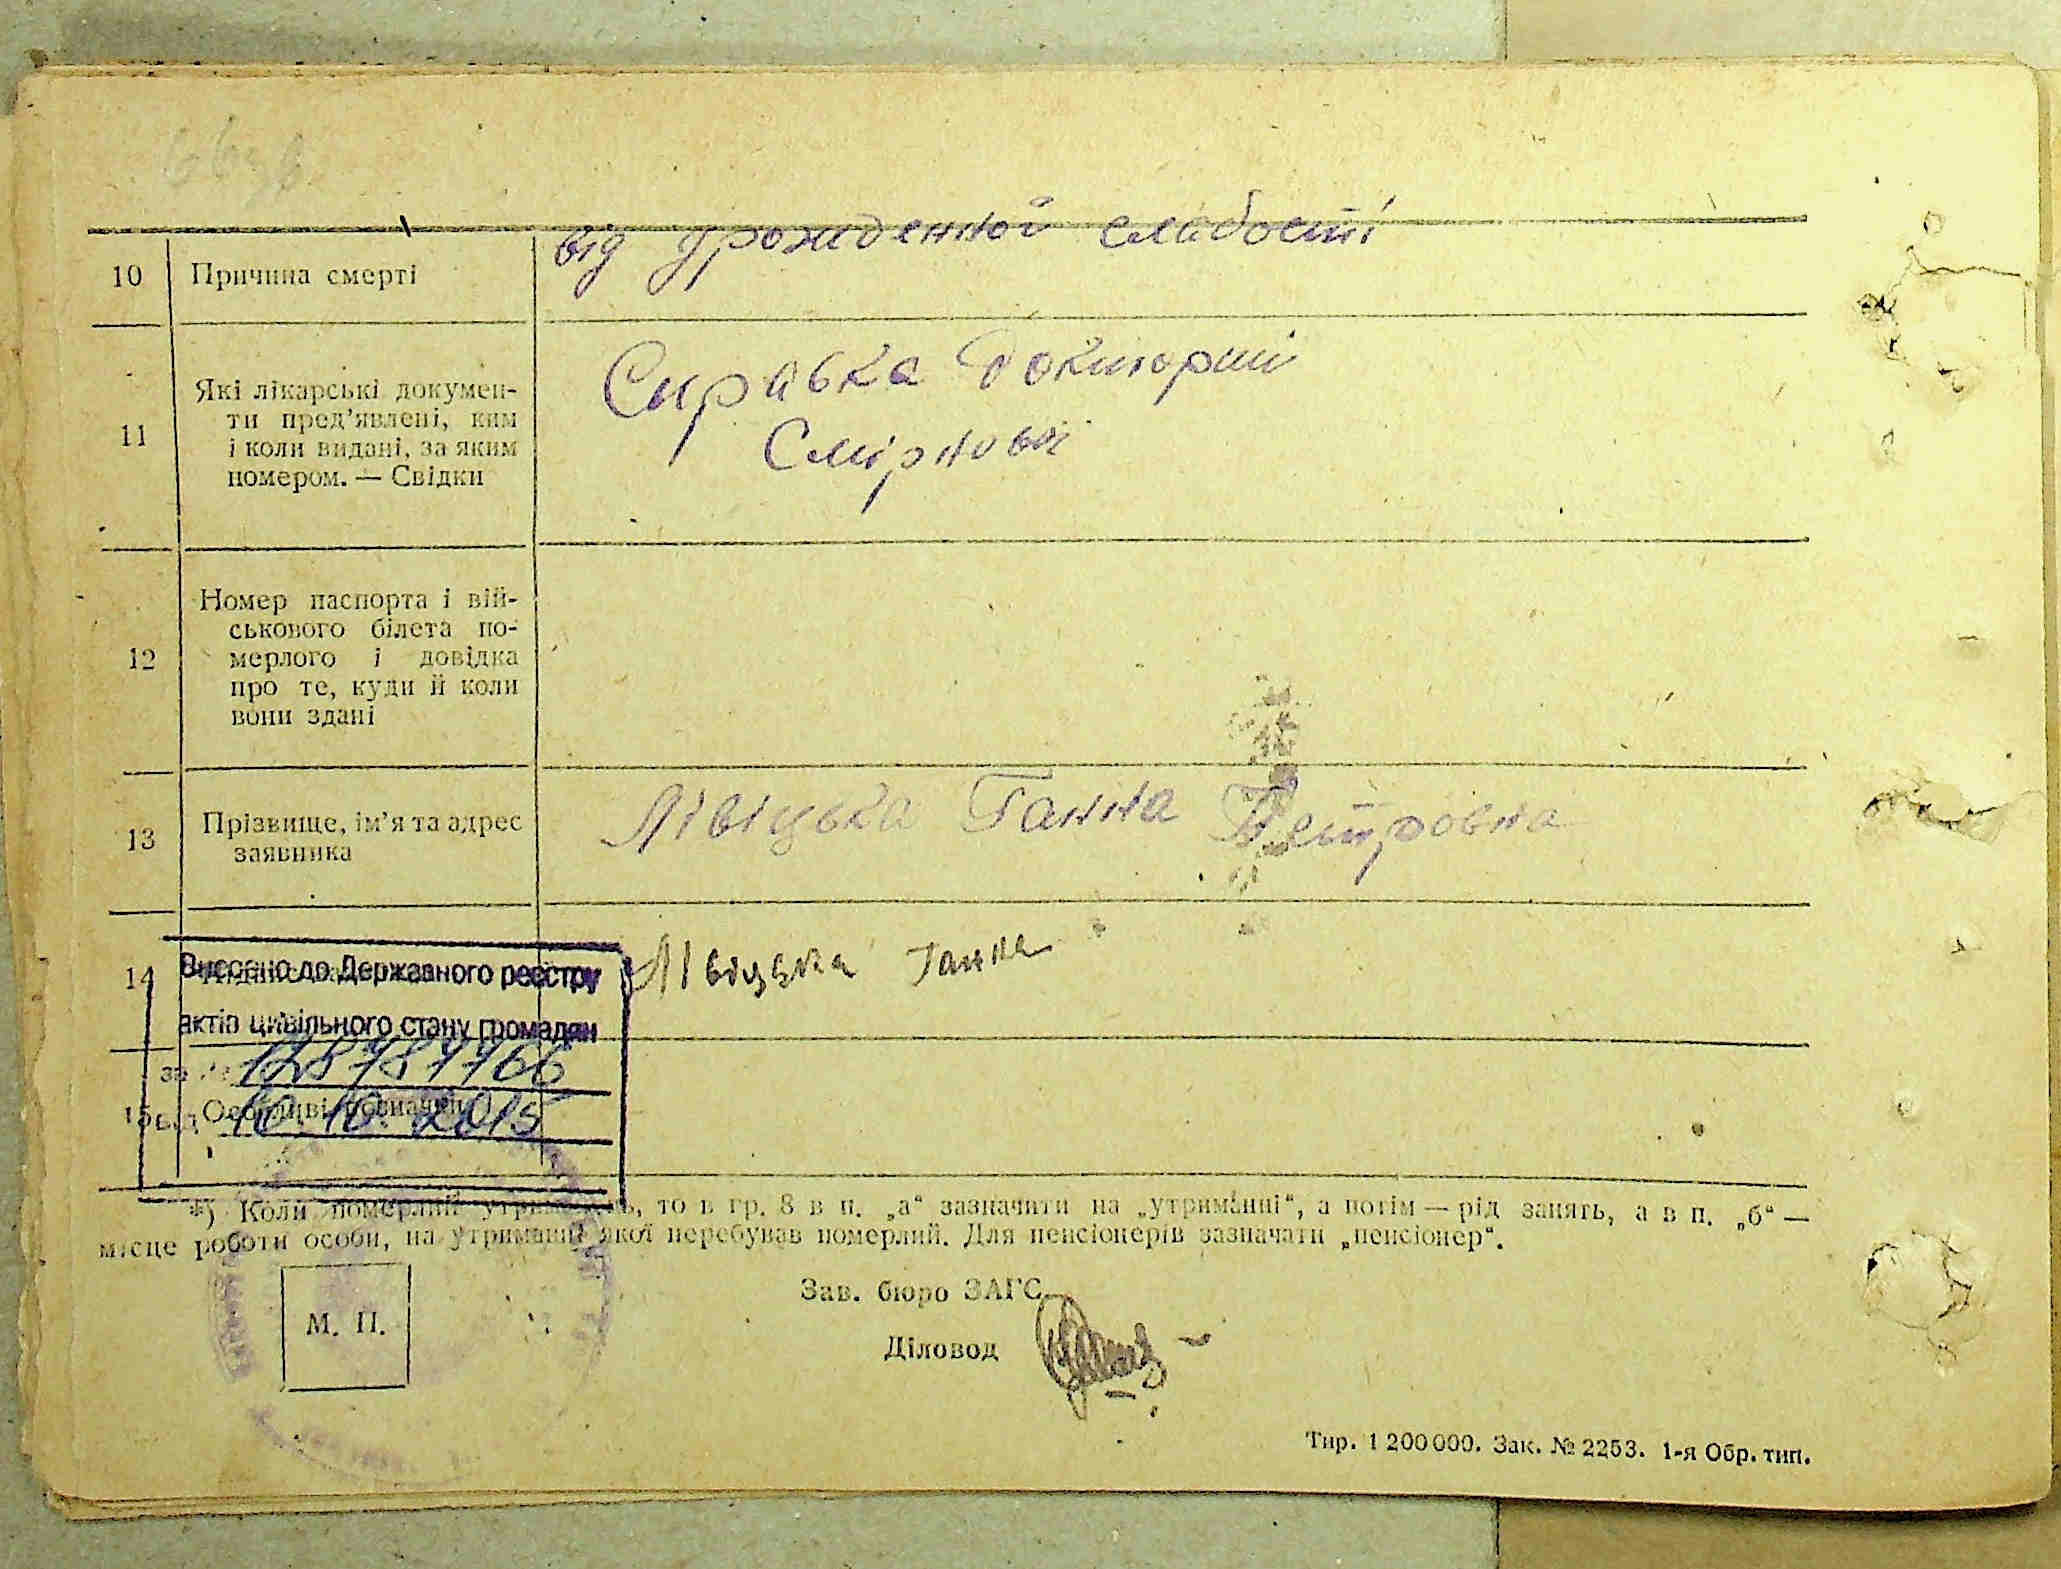 10 Причина смерті від урожденной слабості
11 Які лікарські докумен-
ти пред’явлені, ким
і коли видані, за яким
номером. — Свідки
Справка докторші
Смірнової
12 Номер паспорта і вій-
ськового білета по-
мерлого і довідка
про те, куди й коли
вони здані
13 Прізвище, ім’я та адрес
заявника
Лівіцька Ганна Петровна
14 Лівіцька Ганна
Внесено до Державного реєстру
актів цивільного стану громадян
за №
15 Особливі
від 10.10.2015
*) Коли померлий утриманець, то в гр. 8 в п. „а“ зазначити на „утриманні“, а потім — рід занять, а в п. „б“ —
місце роботи особи, на утриманні якої перебував померлий. Для пенсіонерів зазначати „пенсіонер“.
М. П.
Зав. бюро ЗАГС
Діловод
Тир. 1 200 000. Зак. № 2253. 1-я Обр. тип.